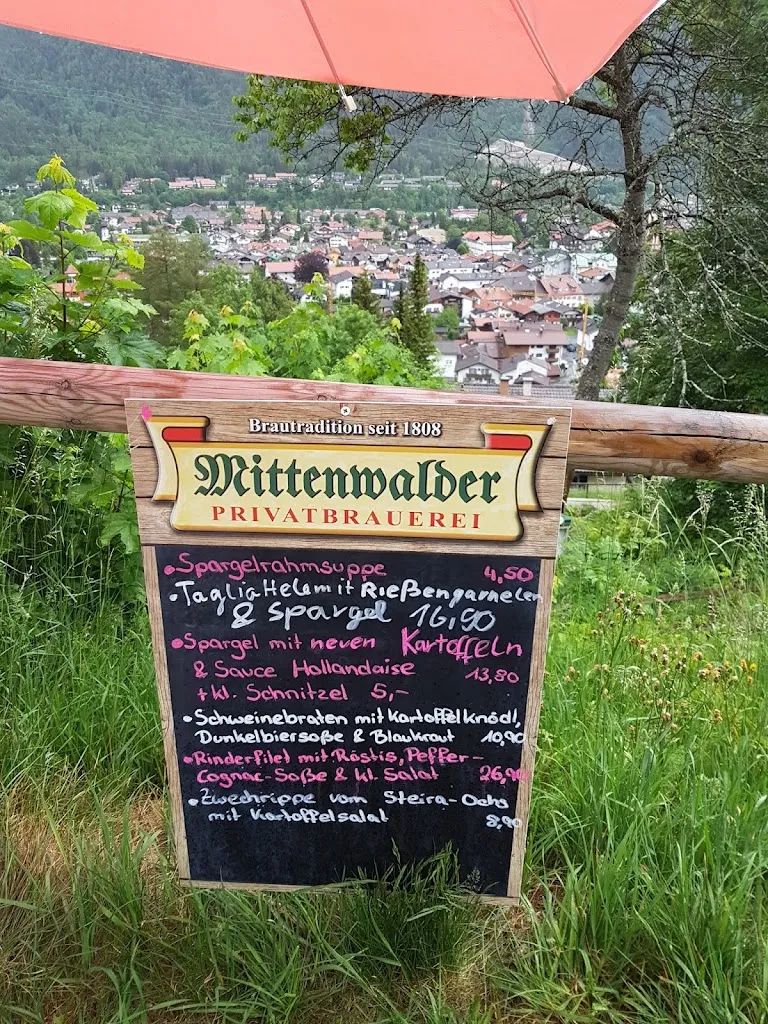 Brautradition seit 1808
Mittenwalder
PRIVATBRAUEREI
•Spargelrahmsuppe 4,50
•Tagliatelle mit Rießengarnelen
& Spargel 16,90
•Spargel mit neuen Kartoffeln
& Sauce Hollandaise 13,80
+ kl. Schnitzel 5,-
•Schweinebraten mit Kartoffelknödl,
Dunkelbiersoße & Blaukraut 10,90
•Rinderfilet mit Röstis, Pfeffer-
Cognac-Soße & kl. Salat 26,90
•Zwechrippe vom Steira-Ochs
mit Kartoffelsalat 8,90